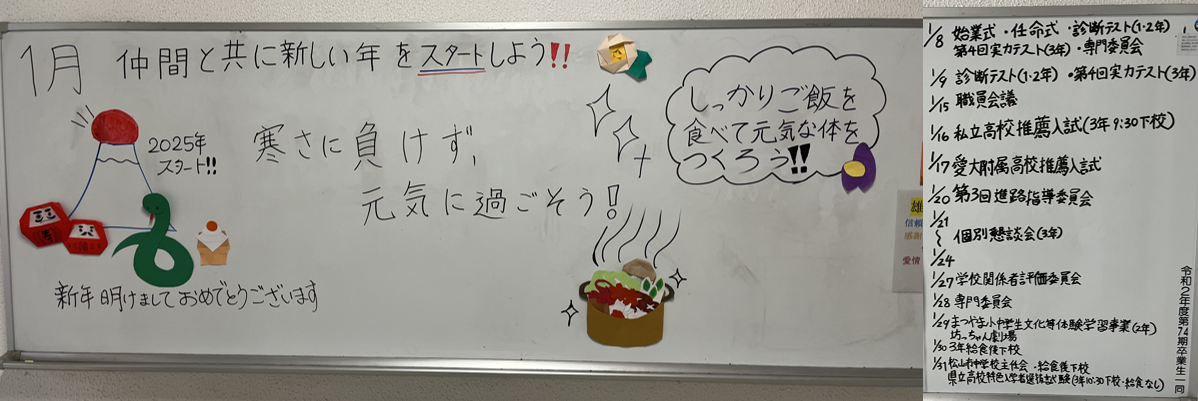 1月 仲間と共に新しい年をスタートしよう!!
2025年
スタート!!
寒さに負けず、
元気に過ごそう!
しっかりご飯を
食べて元気な体を
つくろう!!
新年明けましておめでとうございます
雄
信頼
感謝
愛情
1/8 始業式・任命式・診断テスト(1・2年)
第4回実力テスト(3年)・専門委員会
1/9 診断テスト(1・2年)・第4回実力テスト(3年)
1/15 職員会議
1/16 私立高校推薦入試(3年9:30下校)
1/17 愛大附属高校推薦入試
1/20 第3回進路指導委員会
1/21
〜 個別懇談会(3年)
1/24
1/27 学校関係者評価委員会
1/28 専門委員会
1/29 まつやま小中学生文化等体験学習事業(2年)
坊っちゃん劇場
1/30 3年給食後下校
1/31 松山市中学校主任会・給食後下校
県立高校特色入学者選抜試験(3年10:30下校・給食なし)
令和2年度第74期卒業生一同